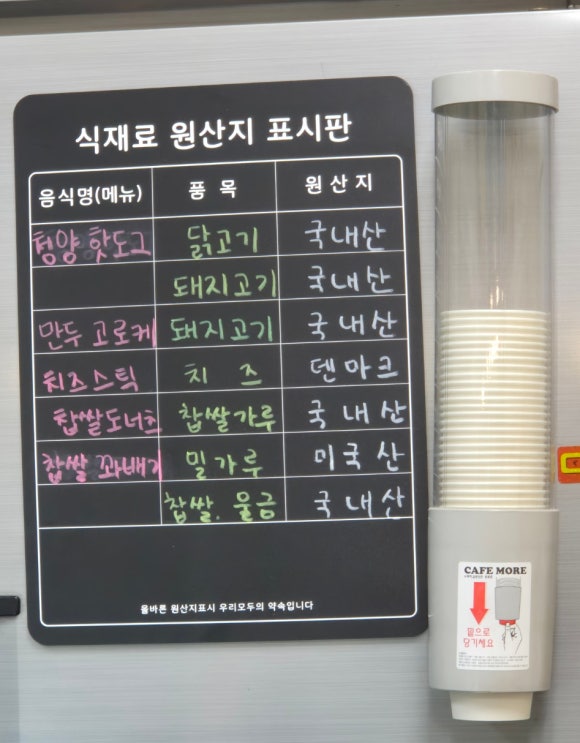 식재료 원산지 표시판
음식명(메뉴) 품 목 원 산 지
청양 핫도그 닭고기 국내산
돼지고기 국내산
만두 고로케 돼지고기 국내산
치즈스틱 치 즈 덴마크
찹쌀도너츠 찹쌀가루 국내산
찹쌀 꽈배기 밀가루 미국산
찹쌀. 울금 국내산
올바른 원산지표시 우리모두의 약속입니다
CAFE MORE
밑으로
당기세요